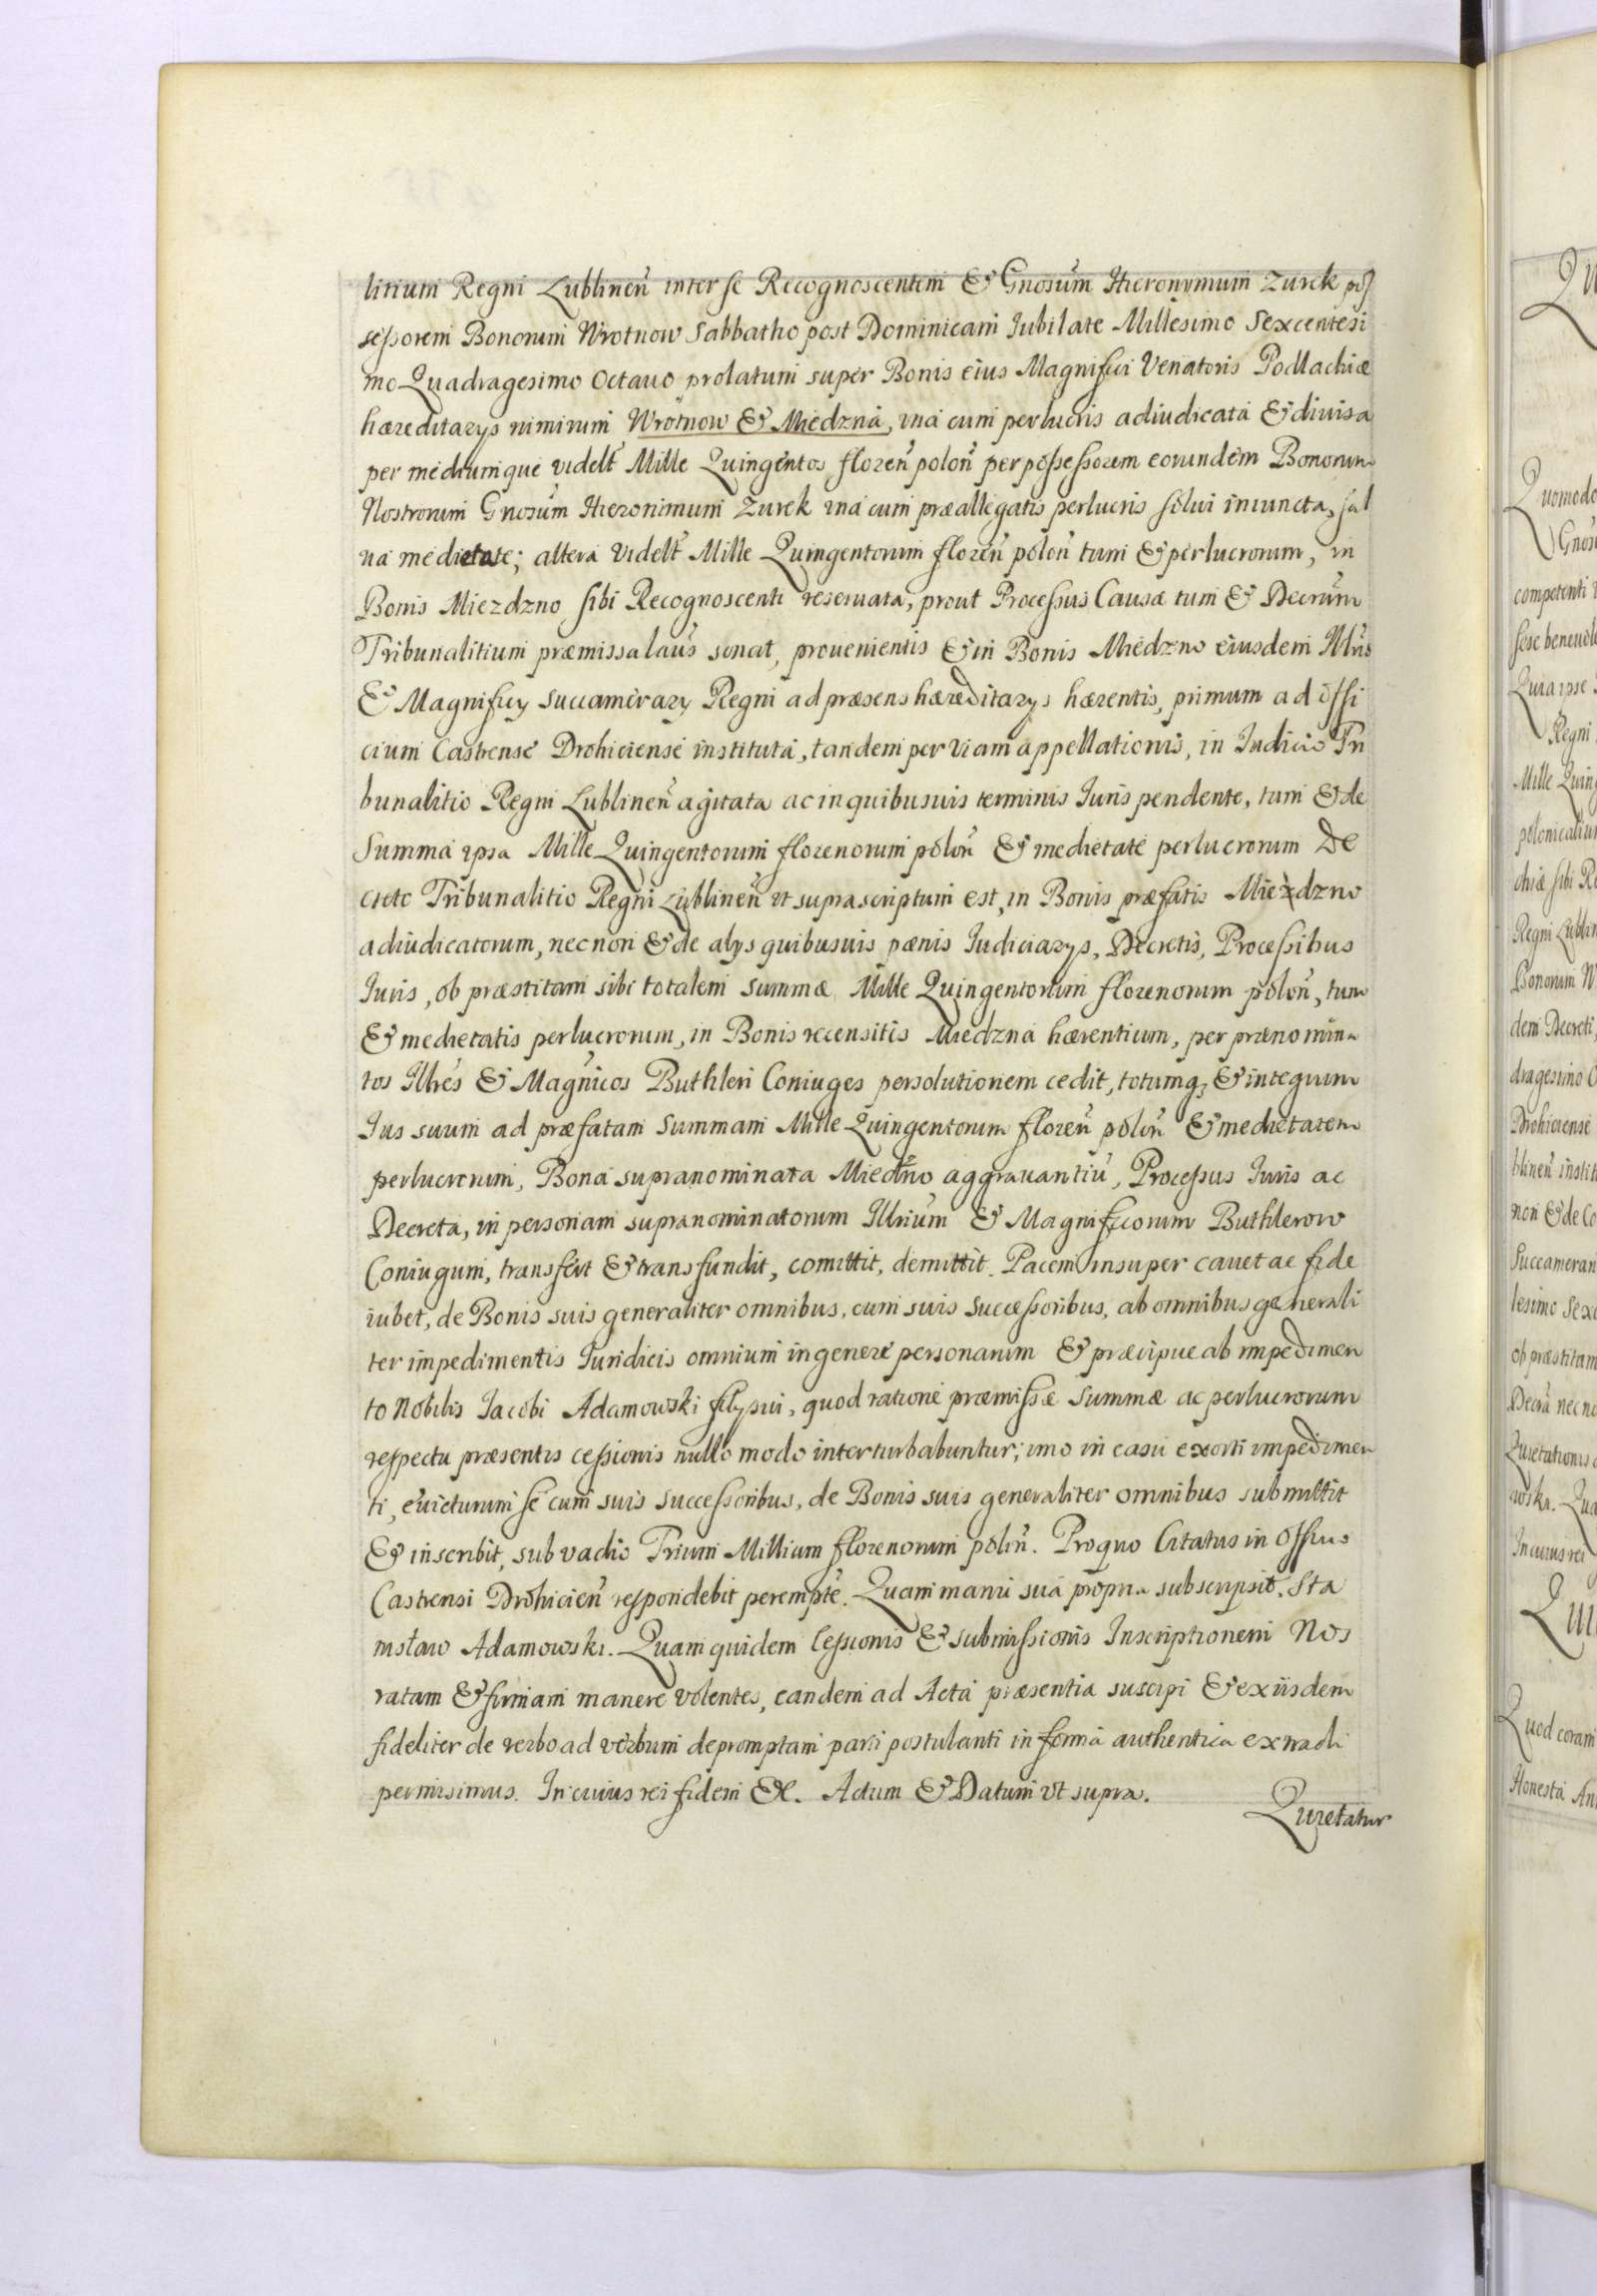 litium Regni Lublineñ inter se Recognoscentem & Gnosum Hieronymum Zurek pos
sessorem Bonorum Wrotnow Sabbatho post Dominicam Iubilate Millesimo Sexcentesi
mo Quadragesimo Octauo prolatum super Bonis eius Magnifici Venatoris Podlachiæ
hæreditarys nimirum Wrotnow & Miedzna, vna cum perlucris adiudicata & diuisa
per mediumque videlt Mille Quingentos floreñ poloñ per possessorem eorundem Bonorum
Nostrorum Gnosum Hieronimum Zurek vna cum præallegatis perlucris solui iniuncta, sal
ua medietate; altera videlt Mille Quingentorum floreñ poloñ tum & perlucrorum, in
Bonis Miezdzno sibi Recognoscenti reseruata, prout Processus Causæ tum & Decrum
Tribunalitium præmissa latius sonat, prouenientis & in Bonis Miedzno eiusdem Illris
& Magnificy Succamerary Regni ad præsens hæreditarys hærentis, primum ad offi
cium Castrense Drohiciense instituta, tandem per viam appellationis, in Iudicio Tri
bunalitio Regni Lublineñ agitata ac in quibusuis terminis Iuris pendente, tum & de
Summa ipsa Mille Quingentorum florenorum poloñ & medietate perlucrorum De
creto Tribunalitio Regni Lublineñ vt suprascriptum est, in Bonis præfatis Miezdzno
adiudicatorum, necnon & de alys quibusuis pænis Iudiciarys, Decretis, Processibus
Iuris, ob præstitam sibi totalem summæ Mille Quingentorum florenorum poloñ, tum
& medietatis perlucrorum, in Bonis recensitis Miedzna hærentium, per prænomina
tos Illres & Magnicos Buthleri Coniuges persolutionem cedit, totumq3 & integrum
Ius suum ad præfatam Summam Mille Quingentorum floreñ poloñ & medietatem
perlucrorum, Bona supranominata Miedzno aggrauantiu, Processus Iuris ac
Decreta, in personam supranominatorum Illrium & Magnificorum Buthlerow
Coniugum, transfert & transfundit, comittit, demittit. Pacem insuper cauet ac fide
iubet, de Bonis suis generaliter omnibus, cum suis successoribus, ab omnibus generali
ter impedimentis Iuridicis omnium in genere personarum & præcipue ab impedimen
to Nobilis Iacobi Adamowski filij sui, quod ratione præmissæ Summæ ac perlucrorum
respectu præsentis cessionis nullo modo interturbabuntur; imo in casu exorti impedimen
ti, euicturum se cum suis successoribus, de Bonis suis generaliter omnibus submittit
& inscribit, sub vadio Trium Millium florenorum poloñ. Pro quo Citatus in Officio
Castrensi Drohicieñ respondebit perempte. Quam manu sua propria subscripsit. Sta
nisław Adamowski. Quam quidem Cessionis & submissionis Inscriptionem Nos
ratam & firmam manere volentes, eandem ad Acta præsentia suscipi & ex iisdem
fideliter de verbo ad verbum depromptam parti postulanti in forma authentica extradi
permisimus. In cuius rei fidem &c. Actum & Datum vt supra.
Quietatur